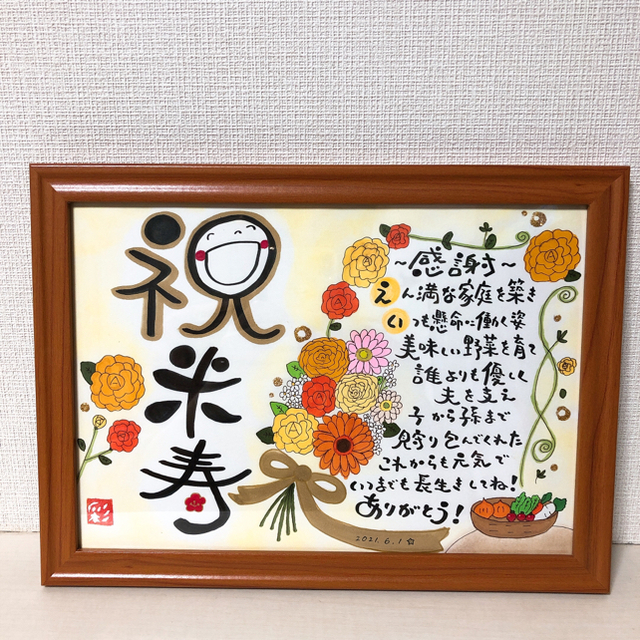 祝
米
寿
～感謝～
えん満な家庭を築き
いつも懸命に働く姿
美味しい野菜を育て
誰よりも優しく
夫を支え
子から孫まで
見守り包んでくれた
これからも元気で
いつまでも長生きしてね!
ありがとう!
2021.6.1☆